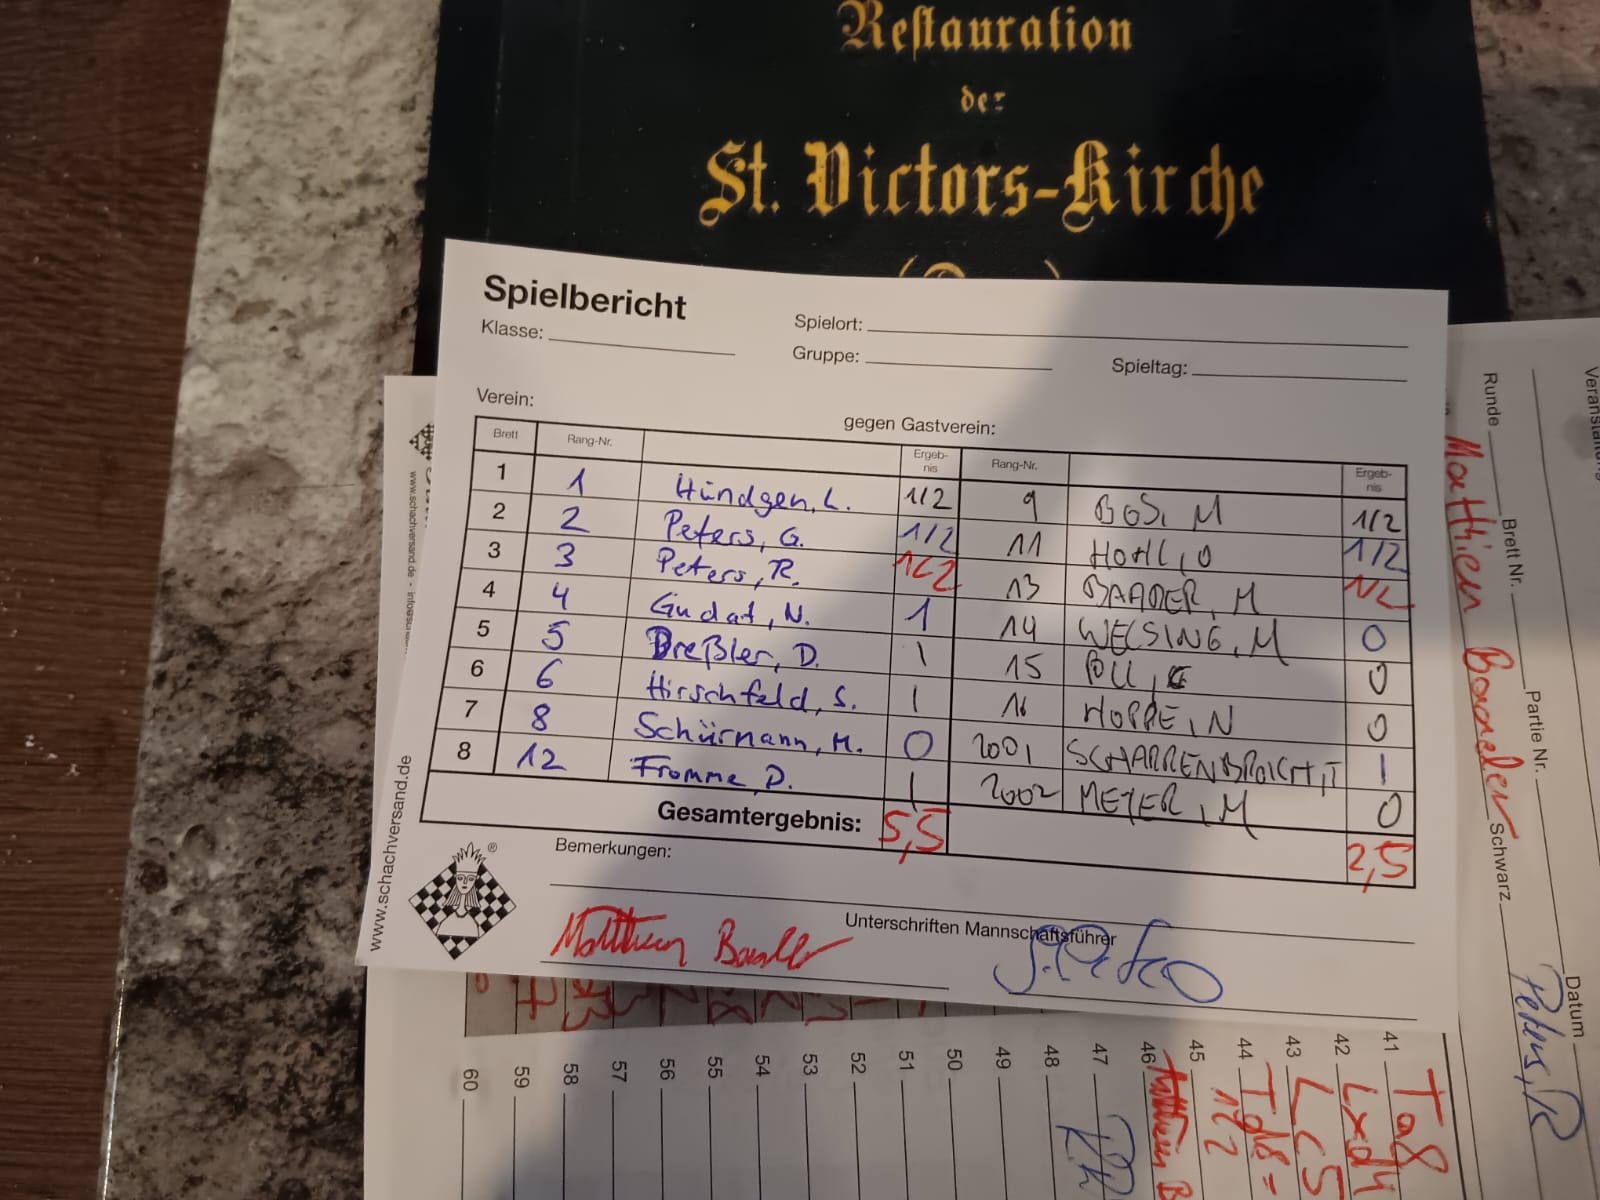 Reſtauration
der
St. Victors-Kirche
Spielbericht
Klasse: Spielort:
Gruppe: Spieltag:
Verein: gegen Gastverein:
Brett Rang-Nr. Ergeb-nis Rang-Nr. Ergeb-nis
1 1 Hündgen, L. 1/2 9 BOS, M 1/2
2 2 Peters, G. 1/2 11 HOHL, O 1/2
3 3 Peters, R. 1/2 13 BAADER, M 1/2
4 4 Gudat, N. 1 14 WELSING, M 0
5 5 Dreßler, D. 1 15 0
6 6 Hirschfeld, S. 1 16 HOPPE, N 0
7 8 Schürmann, M. 0 2001 SCHARRENBROICH, T 1
8 12 Fromme, D. 1 2002 MEYER, M 0
Gesamtergebnis: 5,5 2,5
Bemerkungen:
Unterschriften Mannschaftsführer
www.schachversand.de
www.schachversand.de
Runde Brett Nr. Partie Nr. Datum
Matthieu Baader Schwarz Peters, R
41 Ta8
42 Lxd4
43 Lc5
44 Td8=
45 1/2
46
47
48
49
50
51
52
53
54
55
56
57
58
59
60